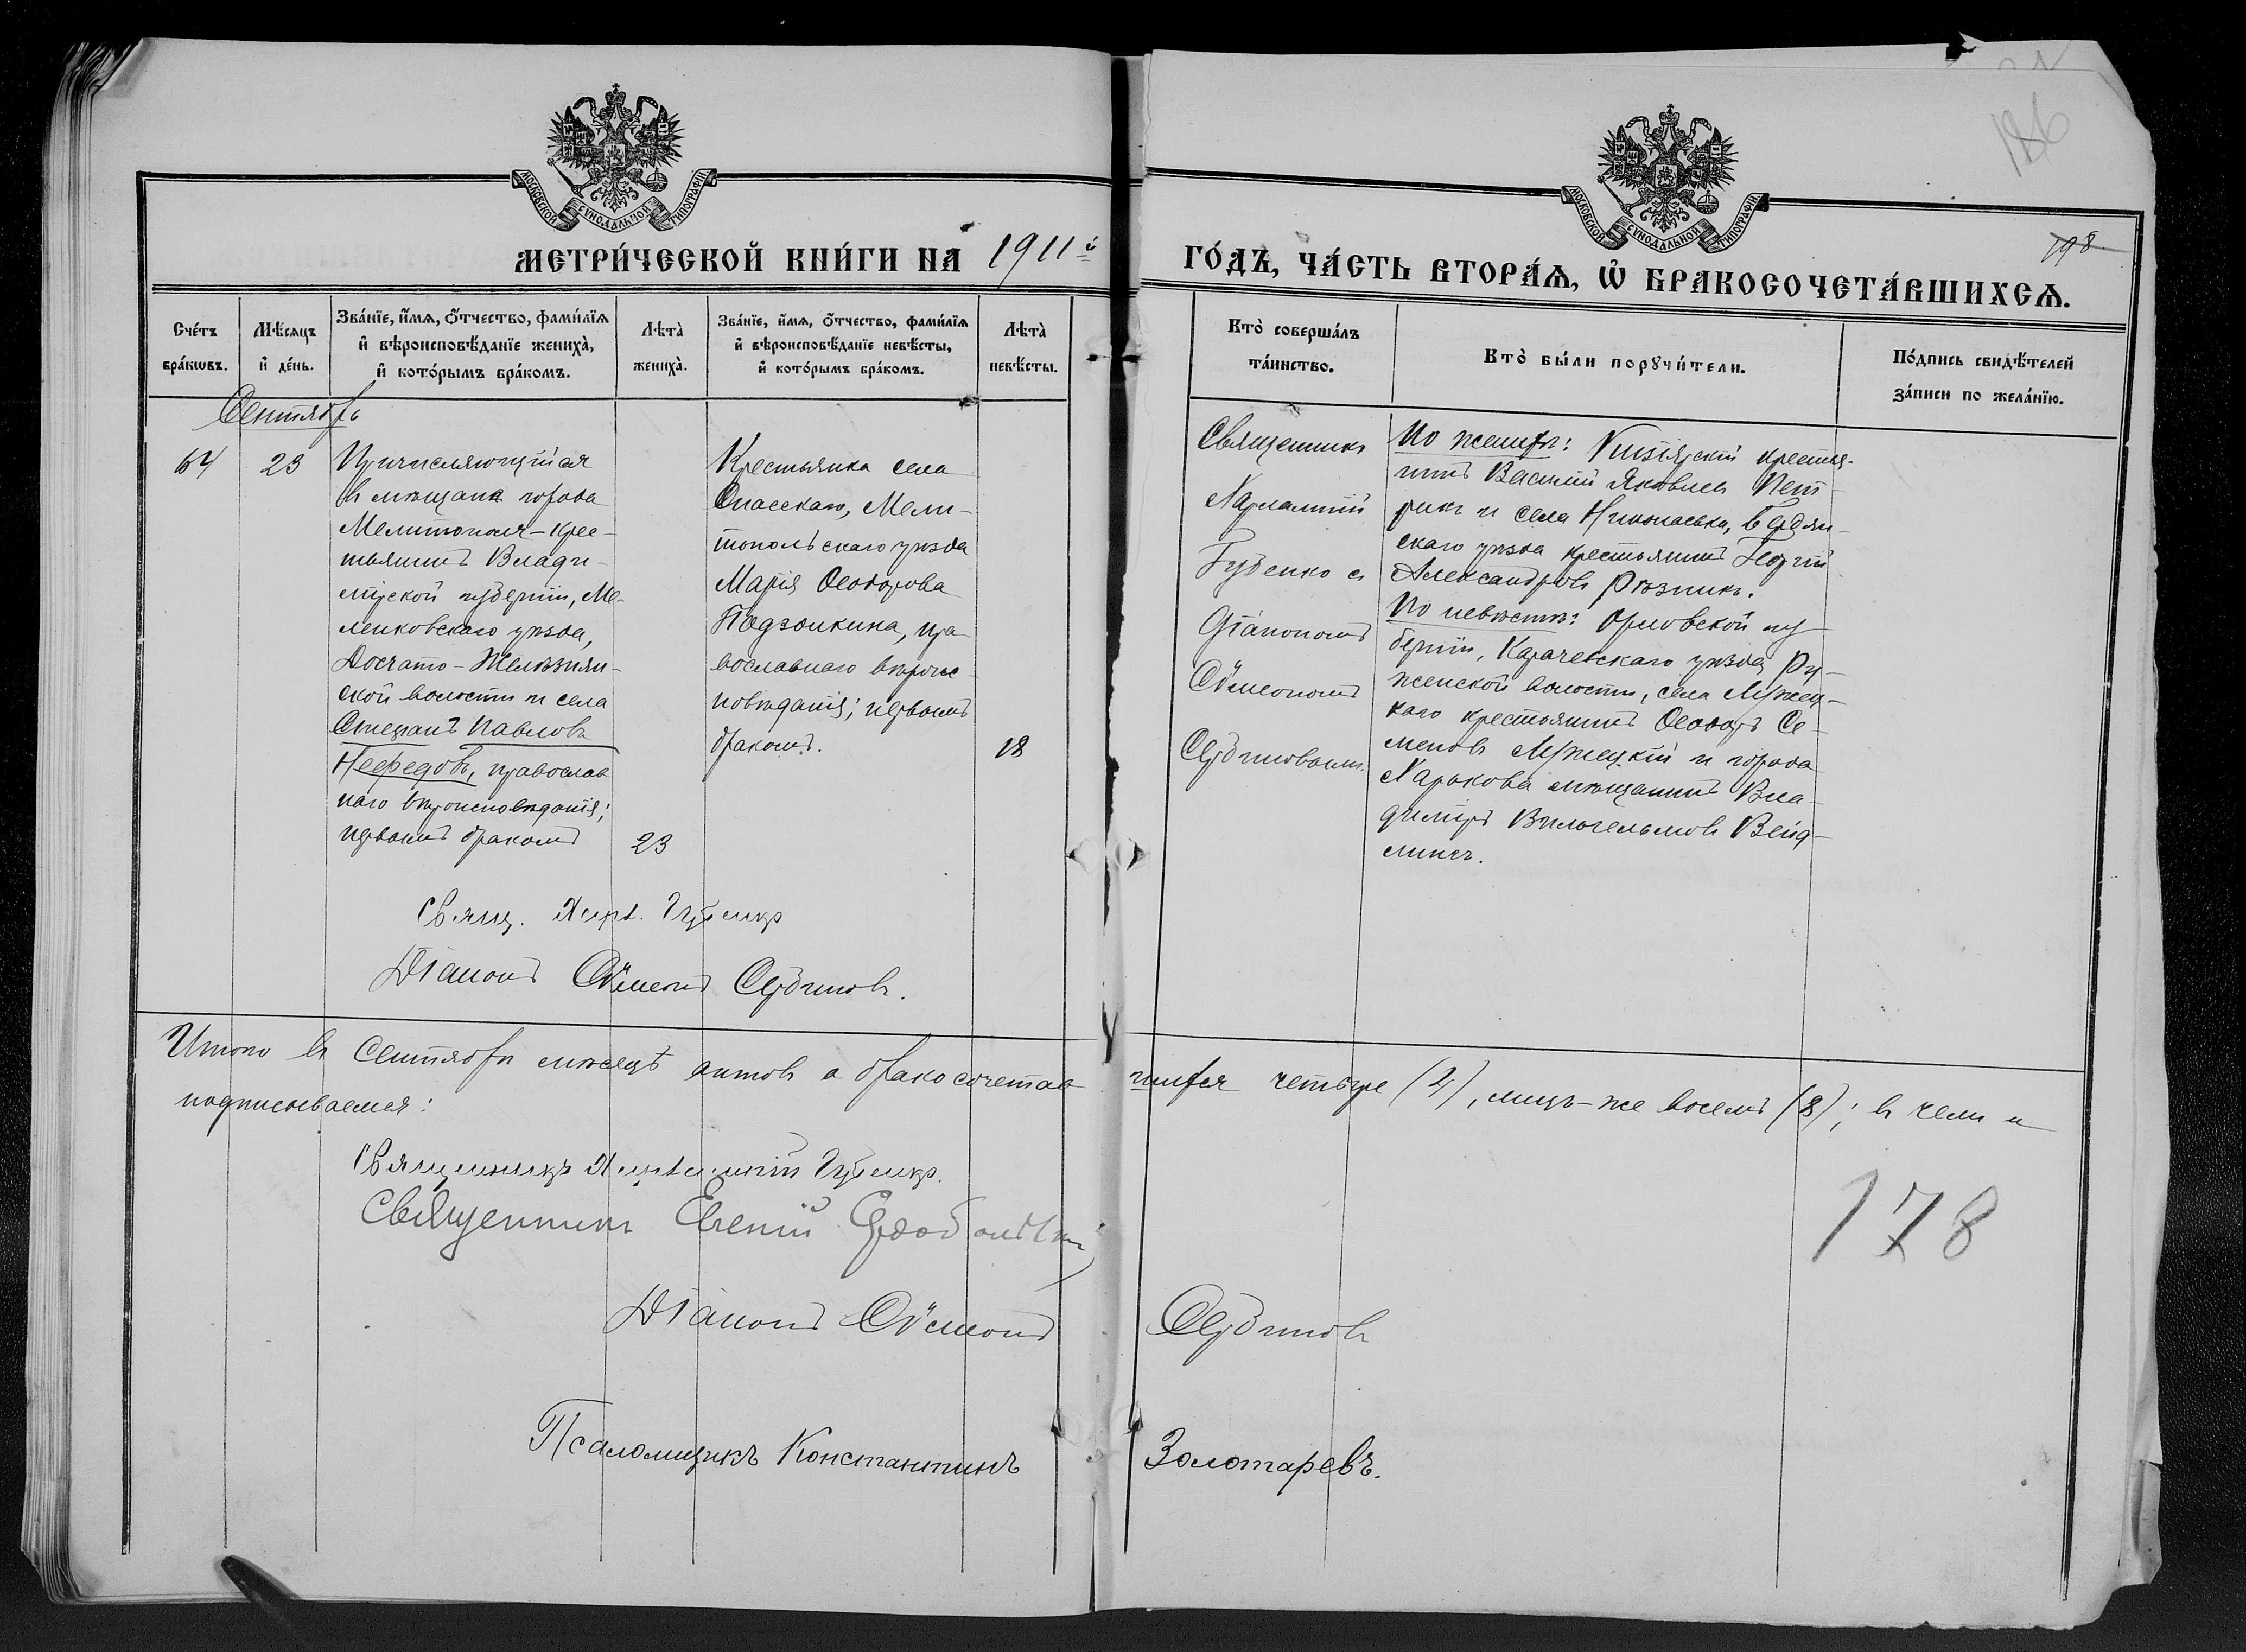 186
198
МОСКОВСКОЙ СѴНОДАЛЬНОЙ ТИПОГРАФІИ
МОСКОВСКОЙ СѴНОДАЛЬНОЙ ТИПОГРАФІИ
МЕТРИ́ЧЕСКОЙ КНИ́ГИ НА 1911й
ГО́ДЪ, ЧА́СТЬ ВТОРА́Ѧ, Ѡ҆ БРАКОСОЧЕТА́ВШИХСѦ.
Сче́тъ
бра́кѡвъ.
Мѣ́сяцъ
и҆ де́нь.
Зва́нїе, и҆́мя, о҆́тчество, фами́лїя
и҆ вѣроисповѣ́данїе жениха̀,
и҆ кото́рымъ бра́комъ.
Лѣта̀
жениха̀.
Зва́нїе, и҆́мя, о҆́тчество, фами́лїя
и҆ вѣроисповѣ́данїе невѣ́сты,
и҆ кото́рымъ бра́комъ.
Лѣта̀
невѣ́сты.
Кто̀ соверша́лъ
та́инство.
Кто̀ бы́ли порꙋчи́тели.
По́дпись свидѣ́телей
за́писи по жела́нїю.
Сентябрь
64
23
Причисляющійся
въ мѣщане города
Мелитополя – крес-
тьянинъ Влади-
мірской губерніи, Ме-
ленковскаго уѣзда,
Досчато-Желѣзнян-
ской волости и села
Стефанъ Павловъ
Нефедовъ, православ
наго вѣроисповѣданія;
первымъ бракомъ
23
Крестьянка села
Спасскаго, Мели-
топольскаго уѣзда
Марія Ѳеодорова
Подзолкина, пра-
вославнаго вѣроис-
повѣданія; первымъ
бракомъ.
18
Священникъ
Харлампій
Губенко съ
діакономъ
Сѵмеономъ
Сербиновымъ.
По женихѣ: Кизіярскій крестья-
нинъ Василій Яковлевъ Пет-
рикъ и села Николаевки, Бердян-
скаго уѣзда крестьянинъ Георгій
Александровъ Рѣзникъ.
По невѣстѣ: Орловской гу-
берніи, Карачевскаго уѣзда, Ру-
женской волости, села
крестьянинъ Ѳеодоръ Се-
меновъ и города
Харькова мѣщанинъ Вла-
диміръ Вильгельмовъ Вейд-
лингъ.
Свящ. Харл. Губенко
Діаконъ Сѵмеонъ Сербиновъ.
Итого въ Сентябрѣ мѣсяцѣ актовъ о бракосочетав
шихся четыре (4), лицъ-же восемь (8); въ чемъ и
подписываемся:
Священникъ Харлампій Губенко.
Священникъ Евгеній
178
Діаконъ Сѵмеонъ Сербиновъ
Псаломщикъ Константинъ Золотаревъ.